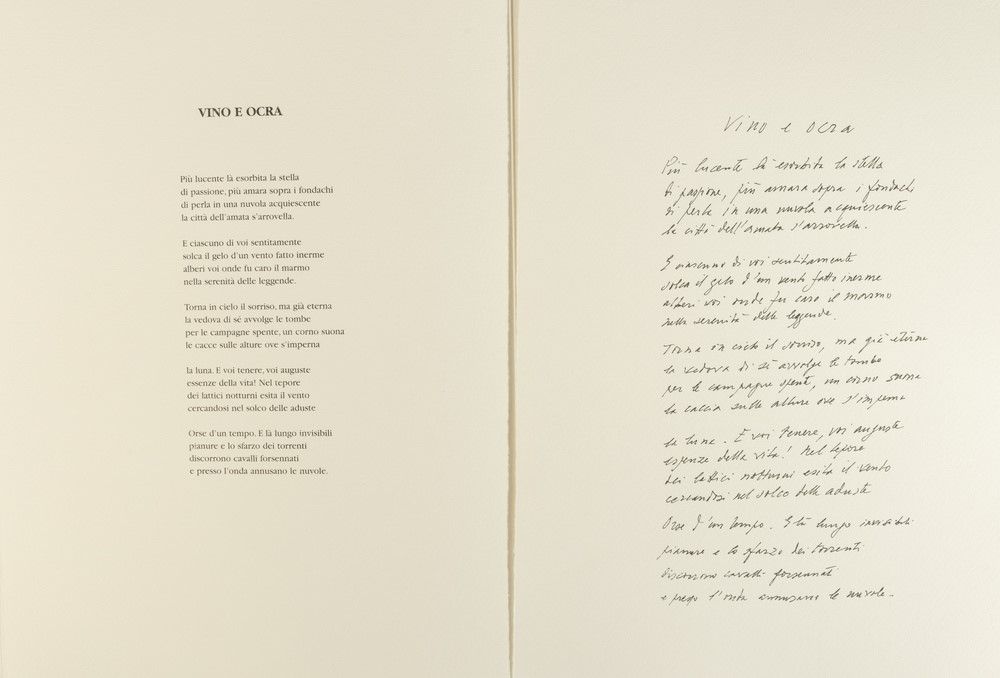 VINO E OCRA
Più lucente là esorbita la stella
di passione, più amara sopra i fondachi
di perla in una nuvola acquiescente
la città dell'amata s'arrovella.
E ciascuno di voi sentitamente
solca il gelo d'un vento fatto inerme
alberi voi onde fu caro il marmo
nella serenità delle leggende.
Torna in cielo il sorriso, ma già eterna
la vedova di sé avvolge le tombe
per le campagne spente, un corno suona
le cacce sulle alture ove s'imperna
la luna. E voi tenere, voi auguste
essenze della vita! Nel tepore
dei lattici notturni esita il vento
cercandosi nel solco delle aduste
Orse d'un tempo. E là lungo invisibili
pianure e lo sfarzo dei torrenti
discorrono cavalli forsennati
e presso l'onda annusano le nuvole.
Vino e ocra
Più lucente là esorbita la stella
di passione, più amara sopra i fondachi
di perla in una nuvola acquiescente
la città dell'amata s'arrovella.
E ciascuno di voi sentitamente
solca il gelo d'un vento fatto inerme
alberi voi onde fu caro il marmo
nella serenità delle leggende.
Torna in cielo il sorriso, ma già eterna
la vedova di sé avvolge le tombe
per le campagne spente, un corno suona
la caccia sulle alture ove s'imperna
la luna. E voi tenere, voi auguste
essenze della vita! Nel tepore
dei lattici notturni esita il vento
cercandosi nel solco delle aduste
Orse d'un tempo. E là lungo invisibili
pianure e lo sfarzo dei torrenti
discorrono cavalli forsennati
e presso l'onda annusano le nuvole.